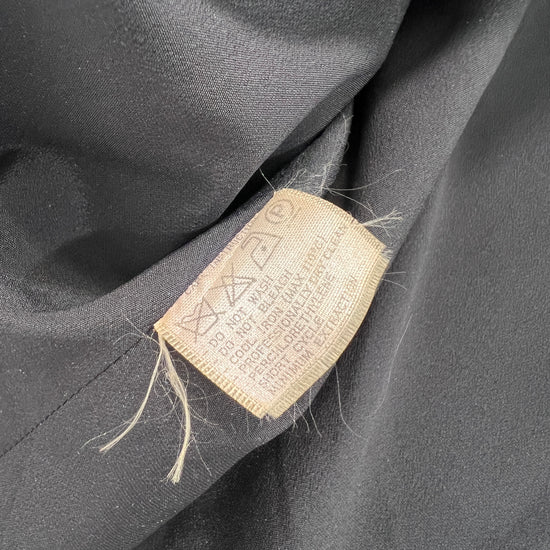 P
DO NOT WASH
DO NOT BLEACH
COOL IRON (MAX 110°C)
PROFESSIONALLY DRY CLEAN
[PERCHLORETHYLENE
SHORT CYCLE
MINIMUM EXTRACTION